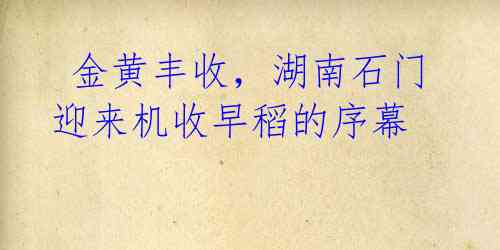 金黄丰收，湖南石门
迎来机收早稻的序幕